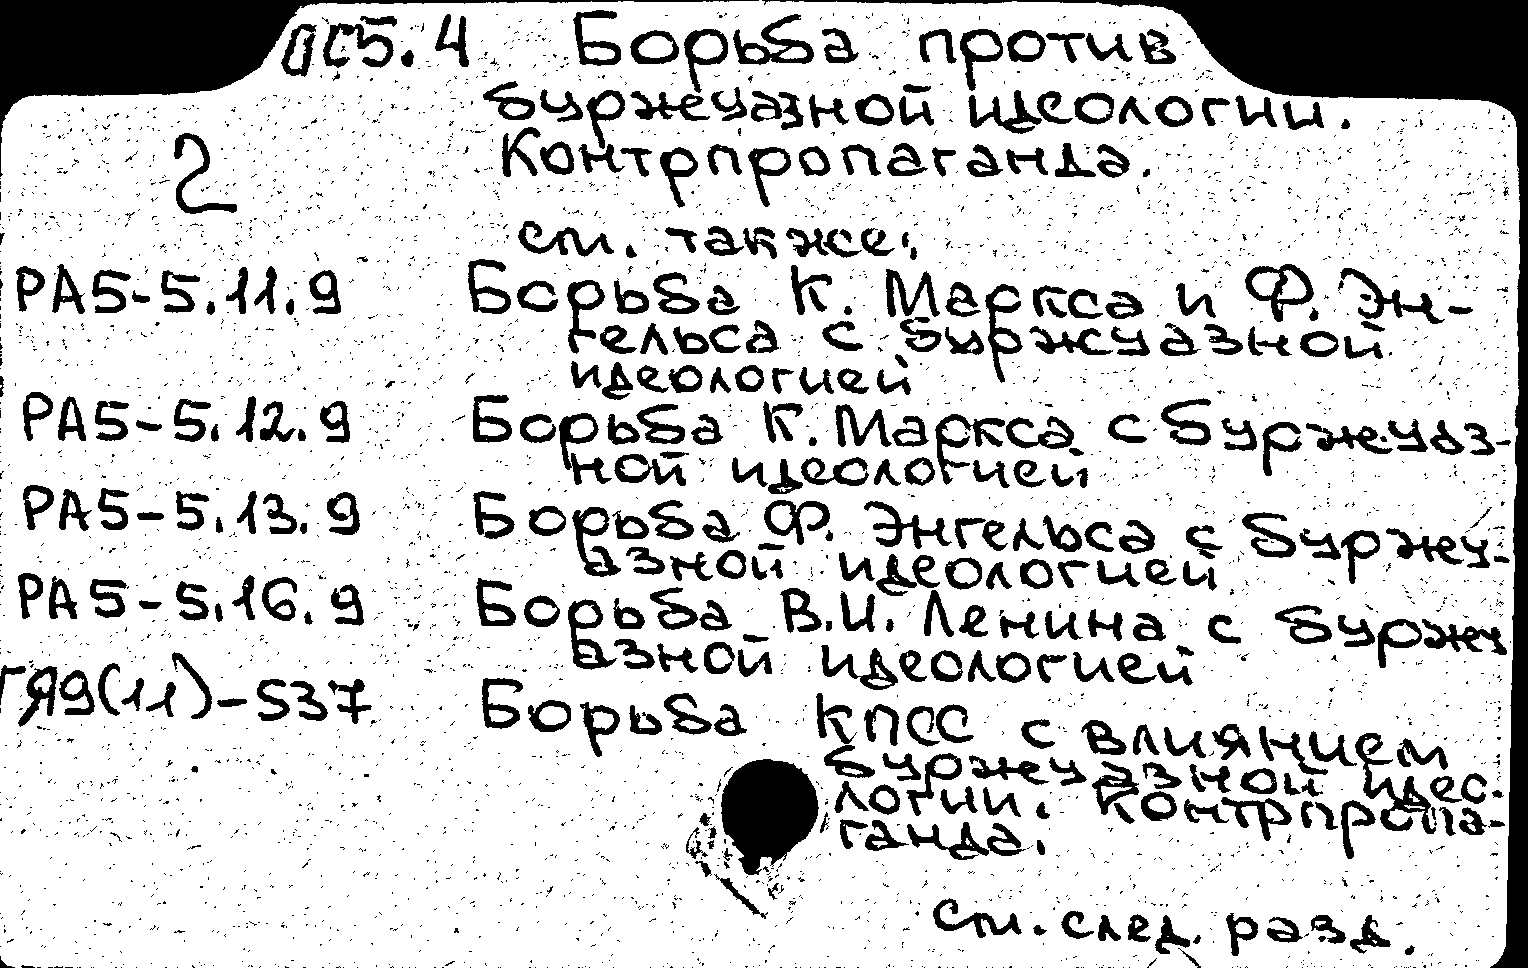 ОС5.4 Борьба против
буржуазной идеологии.
2 Контрпропаганда.
см. также:
РА5-5.11.9 Борьба К. Маркса и Ф. Эн-
гельса с буржуазной
идеологией
РА5-5.12.9 Борьба К. Маркса с буржуаз-
ной идеологией
РА5-5.13.9 Борьба Ф. Энгельса с буржу-
азной идеологией
РА5-5.16.9 Борьба В.И. Ленина с буржу
азной идеологией
ГЯ9(11)-537 Борьба КПСС с влиянием
буржуазной идео-
логии. Контрпропа-
ганда.
см. след. разд.